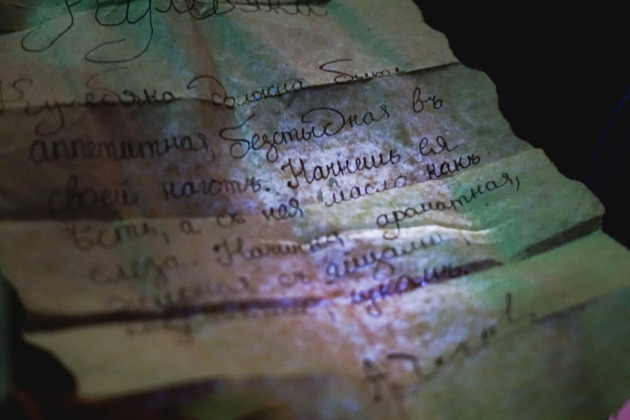 Кулебяка
Кулебяка должна быть
аппетитная, безстыдная въ
своей наготѣ. Начнешь ея
ѣсть, а съ нея масло какъ
слеза. Начинка ароматная,
жирная съ яйцами,
лукомъ.
А. Чехов